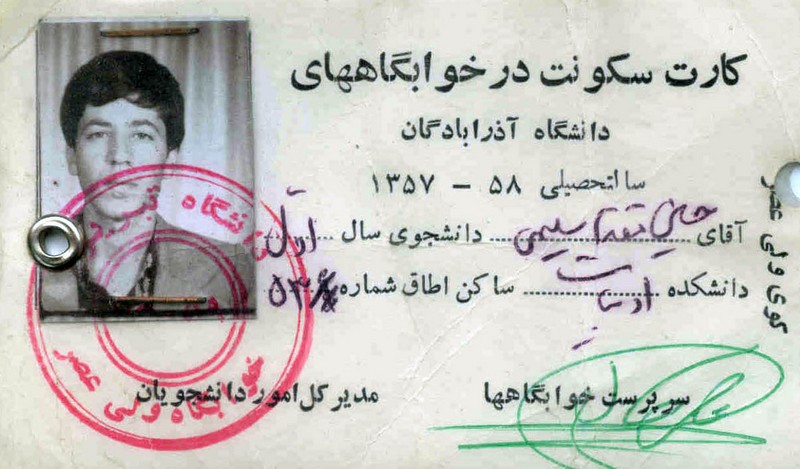 کارت سکونت در خوابگاههای
دانشگاه آذرابادگان
سالتحصیلی ۵۸ - ۱۳۵۷
آقای سلیمی دانشجوی سال اول
دانشکده ادبیات ساکن اطاق شماره
سرپرست خوابگاهها
مدیر کل امور دانشجویان
کوی ولی عصر
دانشگاه
خوابگاه ولی عصر